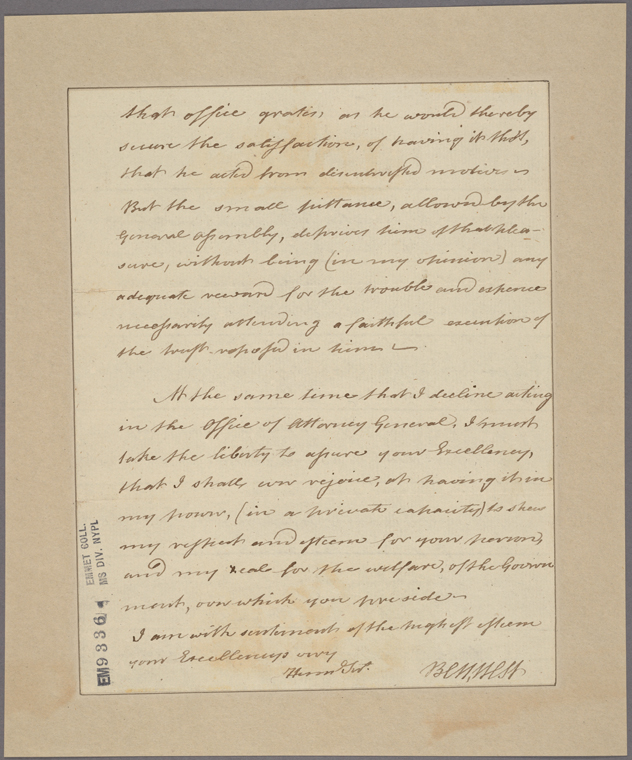 that office gratis as he would thereby
secure the satisfaction, of having it tho't,
that he acted from disinterested motives
But the small pittance, allowed by the
General Assembly, deprives him of that plea-
sure, without being (in my opinion) any
adequate reward for the trouble and expence
necessarily attending a faithful execution of
the trust reposed in him
At the same time that I decline acting
in the Office of Attorney General, I must
take the liberty to assure your Excellency,
that I shall ever rejoice, at having it in
my power, (in a private capacity) to shew
my respect and esteem for your person,
and my zeal for the welfare, of the Govern
ment, over which you preside
I am with sentiments of the highest esteem
your Excellencys very
Hum. Ser.
Ben. West
EMMET COLL.
MS DIV. NYPL
EM9336